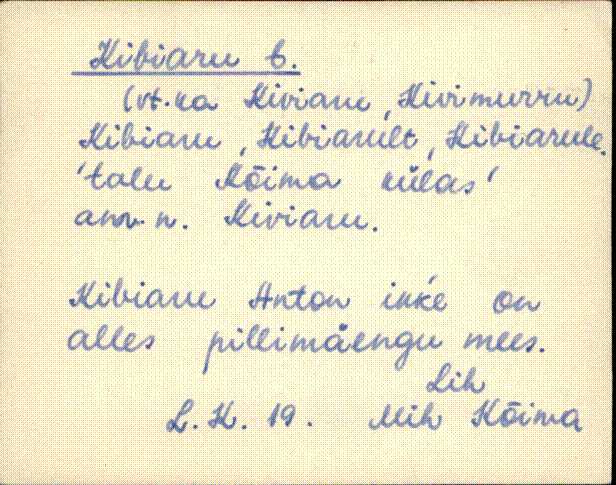 Kibiaru t.
(vt. ka Kiviaru, Kivimurru)
Kibiaru, Kibiarult, Kibiarule.
'talu Kõima külas'
amr. n. Kiviaru.
Kibiaru Anton ikke on
alles pillimäengu mees.
Lih
L.K. 19. Mih Kõima